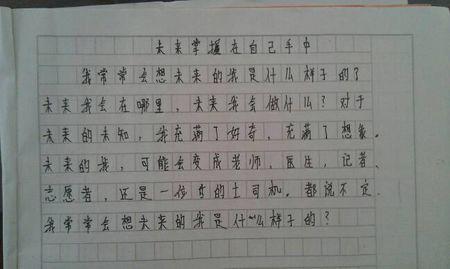 未来掌握在自己手中
我常常会想未来的我是什么样子的？
未来我会在哪里，未来我会做什么？对于
未来的未知，我充满了好奇，充满了想象。
未来的我，可能会变成老师、医生，记者、
志愿者，还是一位的士司机，都说不定。
我常常会想未来的我是什么样子的？